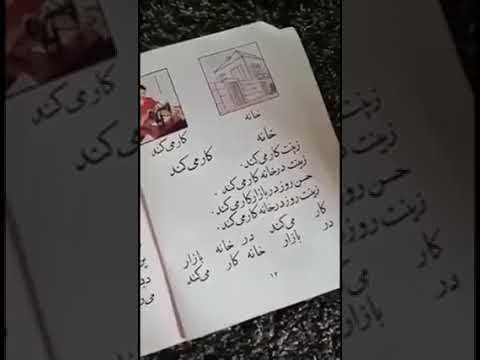 خانه
کار می‌کند
خانه
کار می‌کند
زینت کار می‌کند.
زینت در خانه کار می‌کند.
حسن روز در بازار کار می‌کند.
زینت روز در خانه کار می‌کند.
کار می‌کند در خانه بازار
در بازار خانه کار می‌کند
۱۲